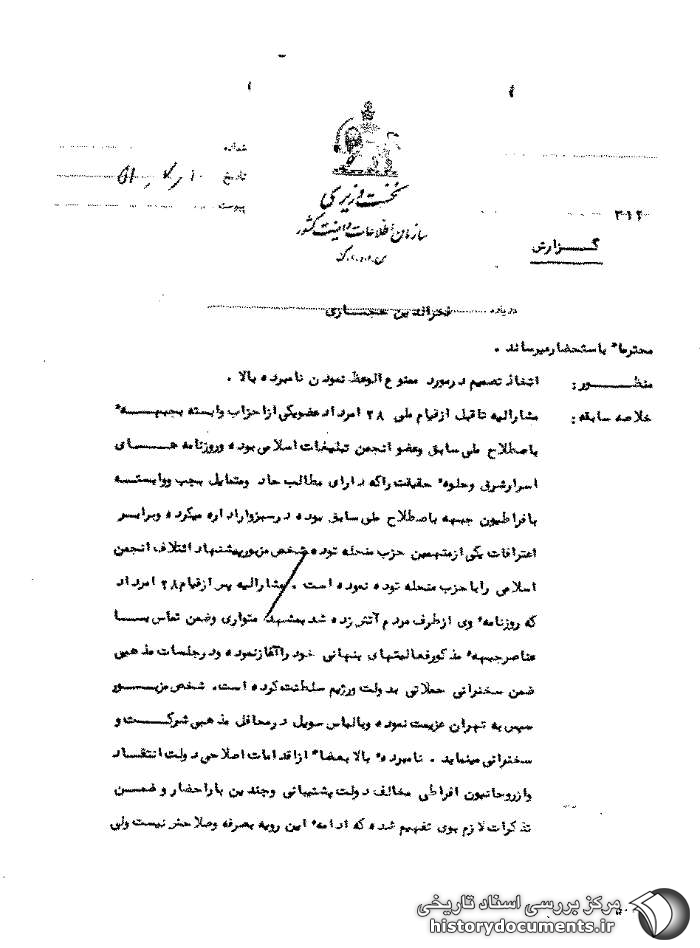 شماره
تاریخ ۱۰ر۷ر۵۱
پیوست
نخست وزیری
سازمان اطلاعات و امنیت کشور
س.ا.و.ا.ک
۳۱۲
گزارش
درباره فخرالدین حجازی
محترماً باستحضار میرساند .
منظور : اتخاذ تصمیم در مورد ممنوع الوعظ نمودن نامبرده بالا .
خلاصه سابقه : مشارالیه تا قبل از قیام ملی ۲۸ امرداد عضو یکی از احزاب وابسته بجبهه
باصطلاح ملی سابق وعضو انجمن تبلیغات اسلامی بوده وروزنامه های
اسرار شرق وجلوه حقیقت راکه دارای مطالب حاد ومتمایل بچپ ووابسته
بافراطیون جبهه باصطلاح ملی سابق بوده در سبزوار اداره میکرده وبرابر
اعترافات یکی از متهمین حزب منحله توده شخص مزبور پیشنهاد ائتلاف انجمن
اسلامی را با حزب منحله توده نموده است . مشارالیه پس از قیام ۲۸ امرداد
که روزنامه وی از طرف مردم آتش زده شد بمشهد متواری وضمن تماس با
عناصر جبهه مذکور فعالیتهای پنهانی خود را آغاز نموده ودر جلسات مذهبی
ضمن سخنرانی حملاتی بدولت ورژیم سلطنت کرده است. شخص مزبور
سپس به تهران عزیمت نموده وبا لباس سویل در محافل مذهبی شرکت و
سخنرانی مینماید . نامبرده بالا بعضاً از اقدامات اصلاحی دولت انتقاد
واز روحانیون افراطی مخالف دولت پشتیبانی وچندین بار احضار و ضمن
تذکرات لازم بوی تفهیم شده که ادامه این رویه بصرفه وصلاحش نیست ولی
مرکز بررسی اسناد تاریخی
historydocuments.ir